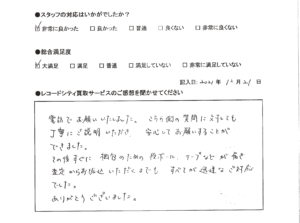 ●スタッフの対応はいかがでしたか?
☑非常に良かった □良かった □普通 □良くない □非常に良くない
●総合満足度
☑大満足 □満足 □普通 □満足していない □非常に満足していない
記入日
●レコードシティ買取サービスのご感想を聞かせてください
電話でお願いいたしました。こちら側の質問に対しても
丁寧にご説明いただき、安心してお願いすることが
できました。
その後すぐに梱包のための段ボール、テープなどが届き
査定からお振込いただくまでも すべてが迅速なご対応
でした。
ありがとうございました。